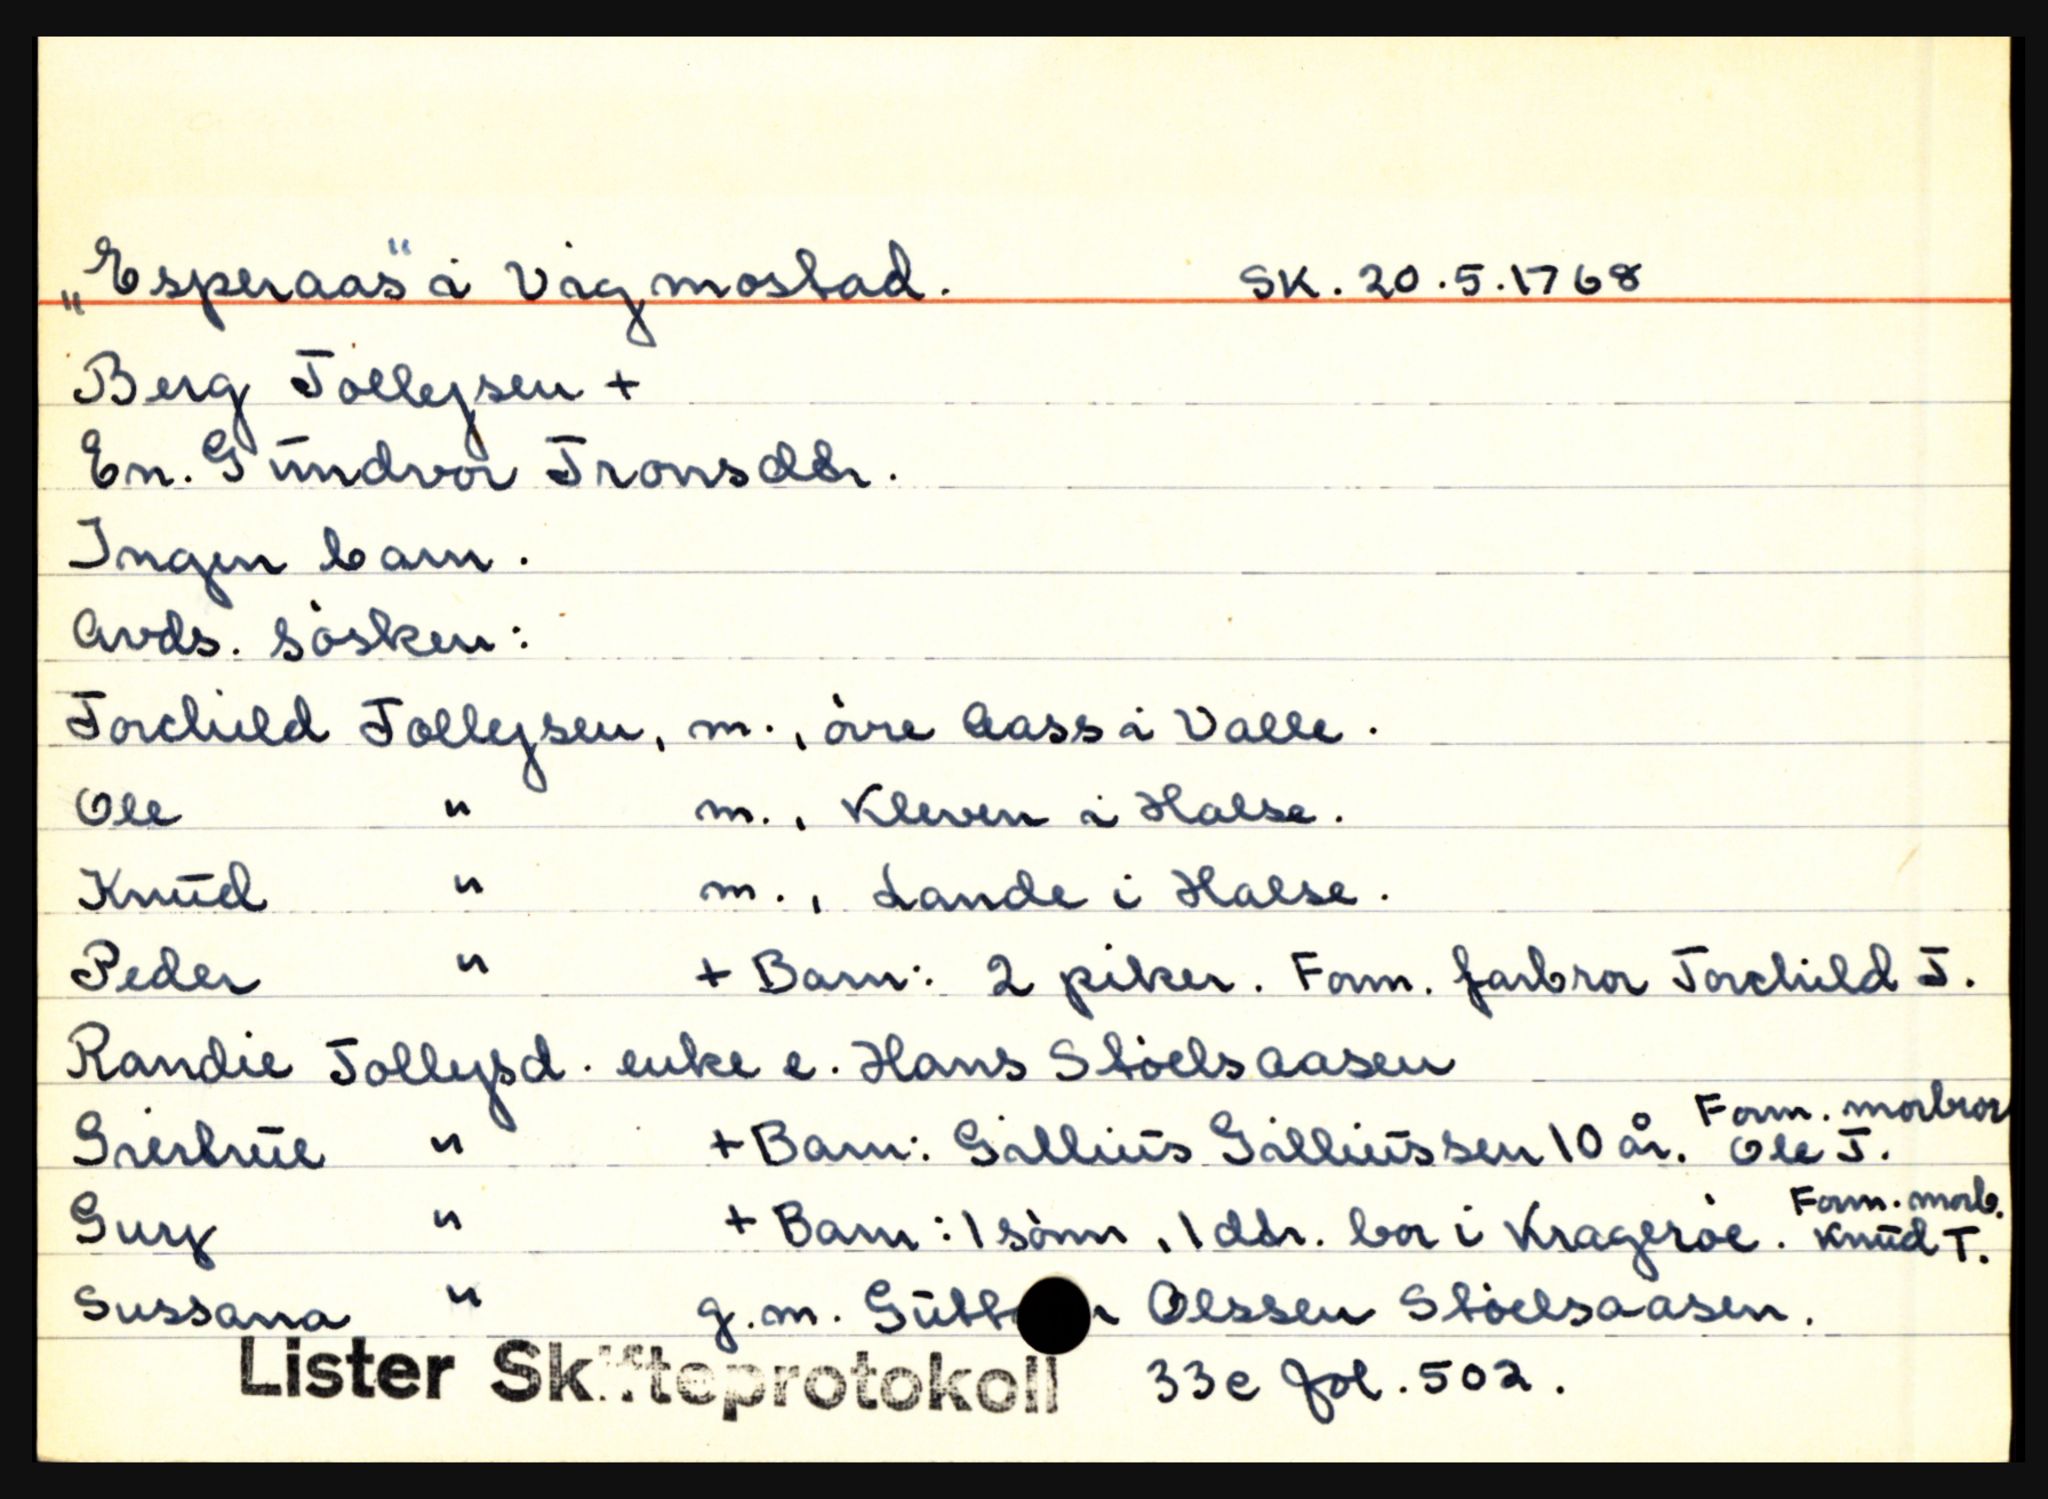 „Esperaas“ i Vigmostad. SK. 20.5.1768
Berg Tollejsen +
En. Gūndvor Tronsdtr.
Ingen barn.
Avds. sösken:
Torchild Tollejsen, m., övre Aass i Valle.
Ole " m., Kleven i Halse.
Knūd " m., Lande i Halse.
Peder " + Barn: 2 piker. Form. farbror Torchild T.
Randie Tollejsd. enke e. Hans Stöelsaasen
Giertrūe " + Barn: Gilliūs Gilliūssen 10 år. Form. morbror Ole T.
Gury " + Barn: 1 sönn, 1 dtr. bor i Krageröe. Form. morb. Knūd T.
Sussana " g.m. Olssen Stöelsaasen.
Lister Skifteprotokoll 33c fol. 502.